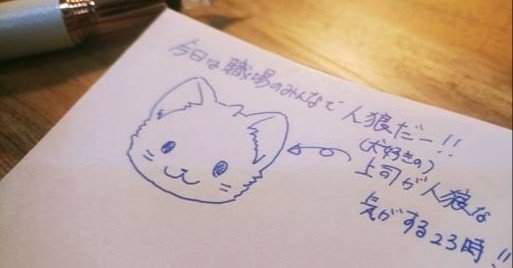 今日は職場のみんなで人狼だー!!
(犬好きの)
上司が人狼な
気がする23時!!